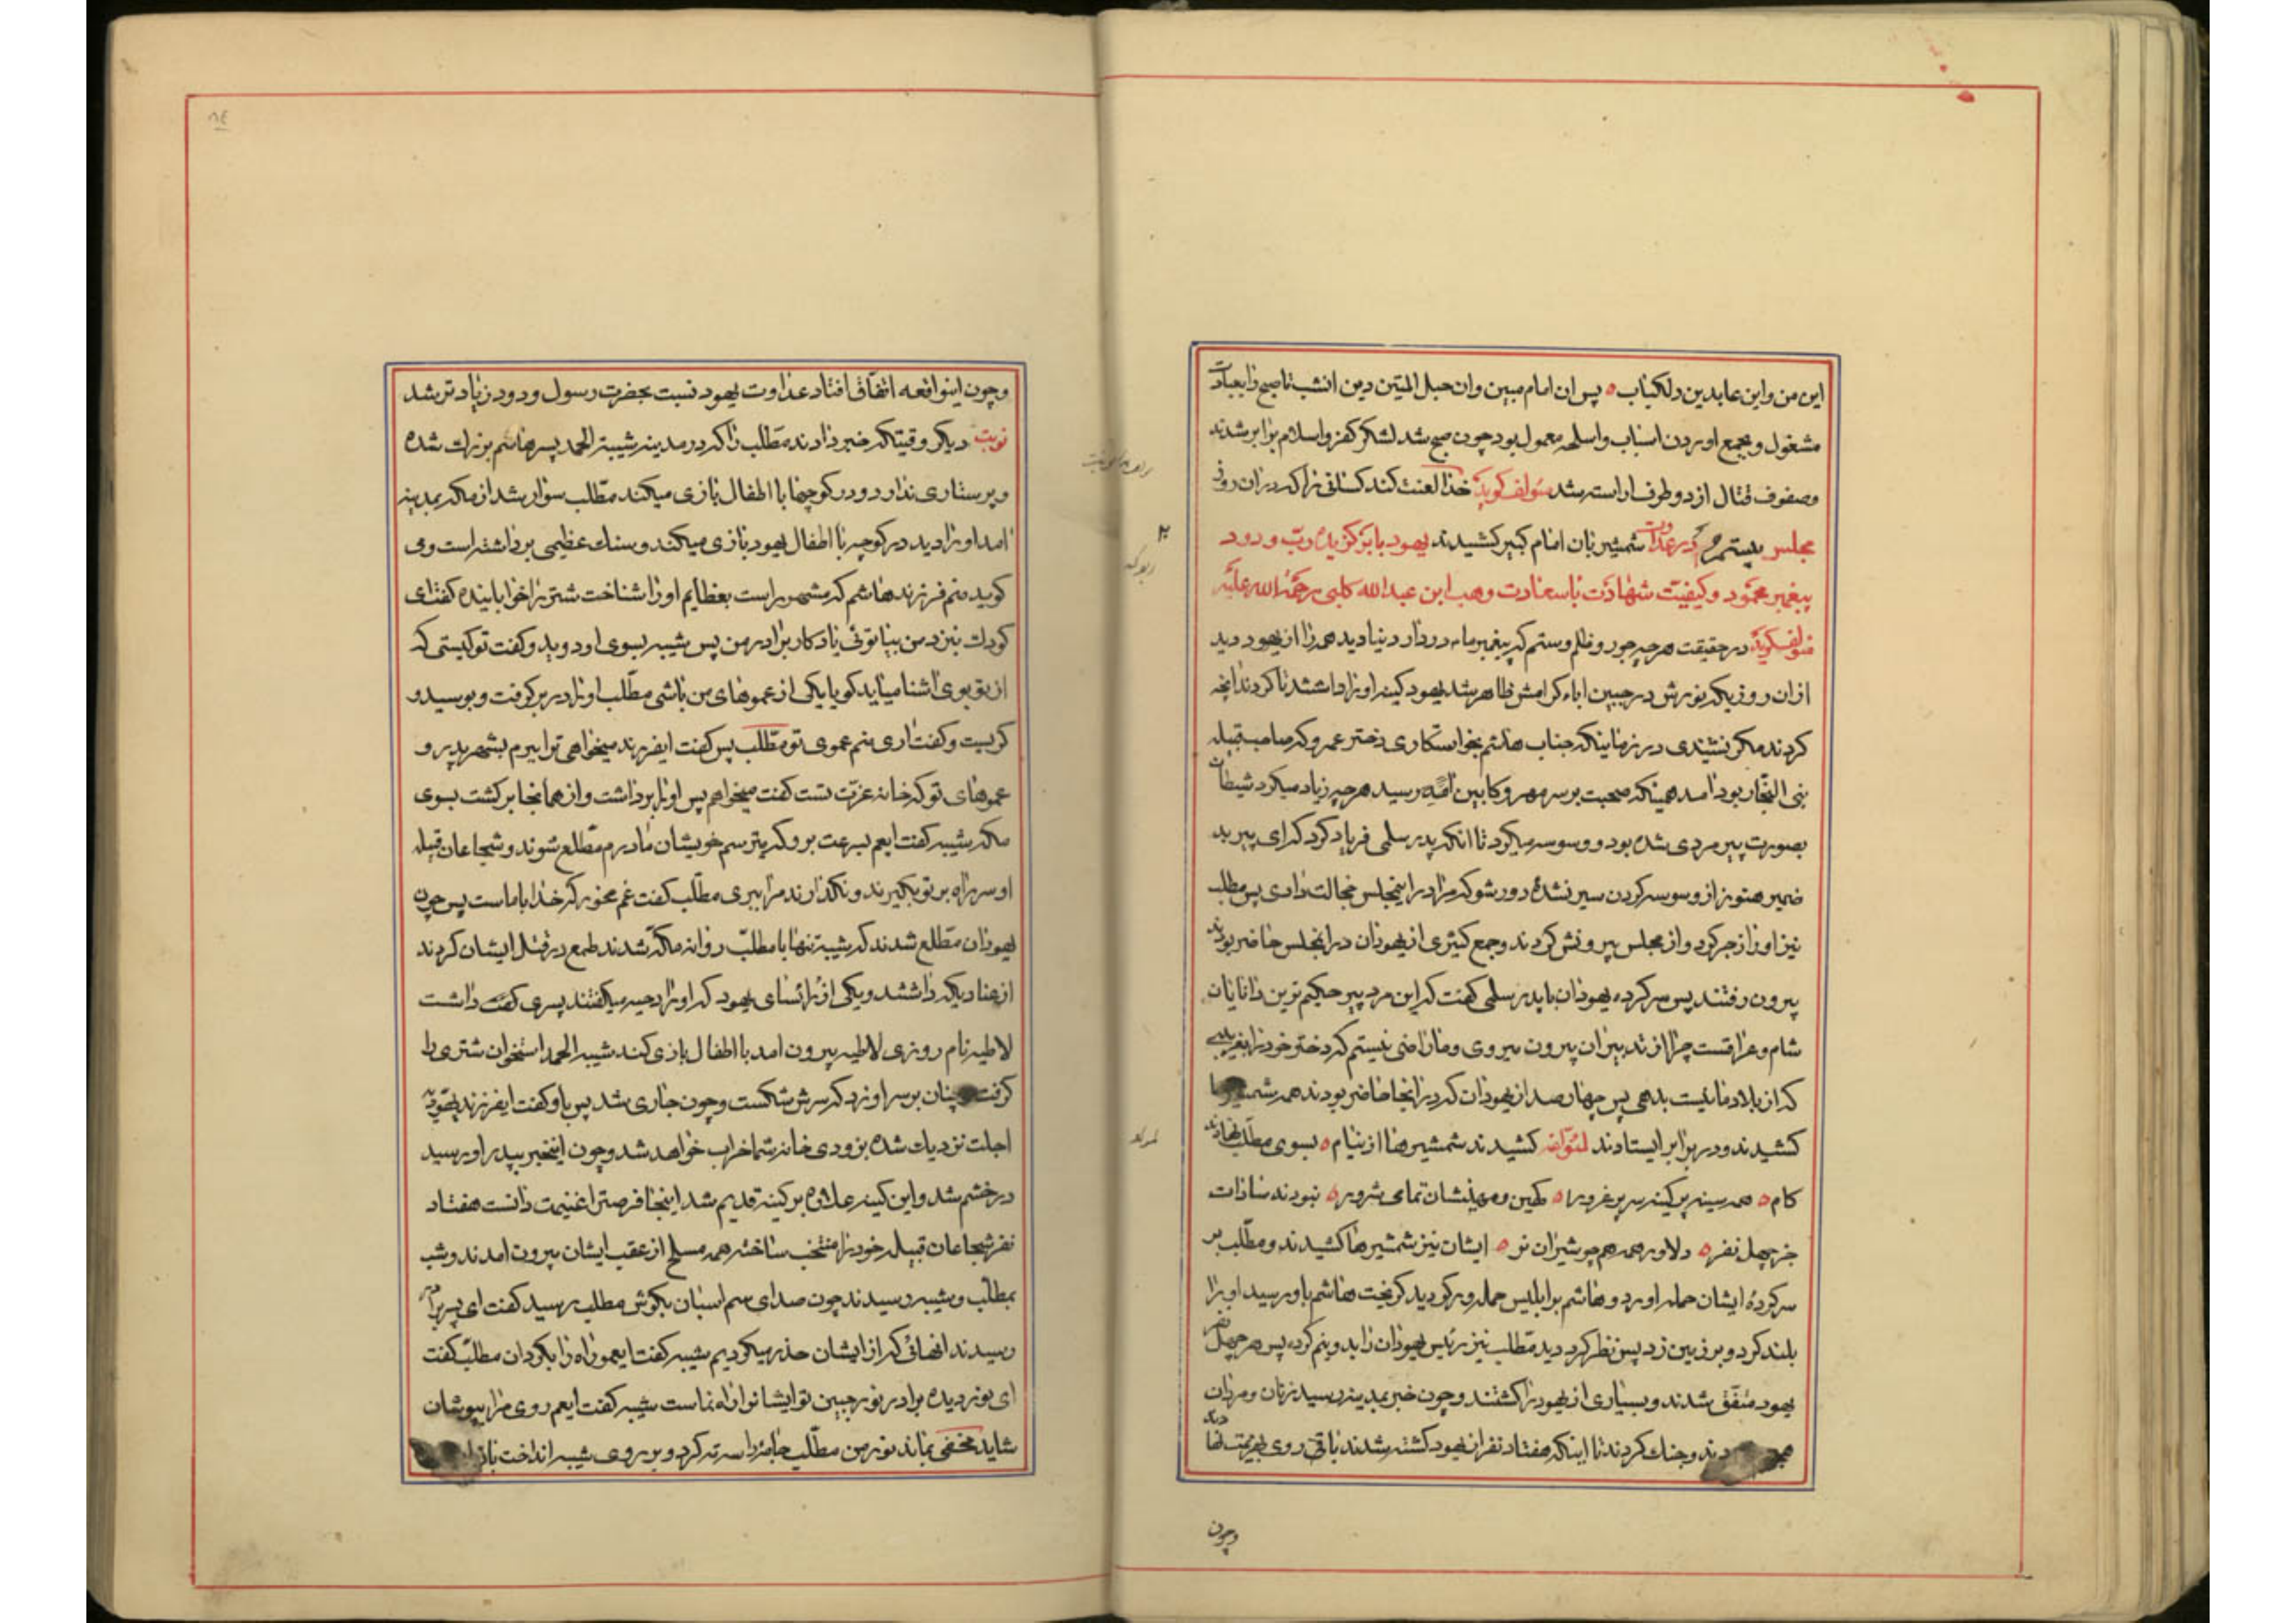 این من و این عابدین دلکباب ه پس ان امام مبین وان حبل المتین دین انشب تا صبح را بعبادت
مشغول و بجمع اوردن اسباب واسلحه معمول بود چون صبح شد لشکر کفر و اسلام برابر شدند
وصفوف قتال از دو طرف اراسته شد مؤلف گوید خدا لعنت کند کسانی را که دران روز
مجلس بیستم در عداوت شمشیر بان امام کبیر کشیدند یهود با برگزیده رب ودود
پیغمبر محمود و کیفیت شهادت با سعادت وهب ابن عبدالله کلبی رحمة الله علیه
مؤلف گوید در حقیقت هر چه جور و ظلم و ستم که پیغمبر ما در دار دنیا دید همه را از یهود دید
از ان روزیکه نورش در جبین اباء کرامش ظاهر شد یهود کینه او را داشتند تا کردند انچه
کردند مگر نشنیدی در زمانیکه جناب هاشم بخواستکاری دختر عمرو که صاحب قبیله
بنی النجار بود امد همینکه صحبت بر سر مهر و کابین رسید هر چه زیاد میکرد شیطان
بصورت پیر مردی شده بود و وسوسه میکرد تا انکه پدر سلمی فریاد کرد که ای پیر بد
ضمیر هنوز از وسوسه کردن سیر نشدۀ دور شو که مرا در اینمجلس خجالت دادی پس مطلب
نیز او را زجر کرد و از مجلس بیرونش کردند و جمع کثیری از یهودان در انمجلس حاضر بودند
بیرون رفتند پس سرکرده یهودان با پدر سلمی گفت که این مرد پیر حکیم ترین دانایان
شام و عراقست چرا از تدبیر ان بیرون میروی و ما راضی نیستم که دختر خود را بغریبی
که از بلاد ما نیست بدهی پس چهار صد از یهودان که در انجا حاضر بودند همه
کشیدند و در برابر ایستادند لمؤلفه کشیدند شمشیرها از نیام ه بسوی مطلب نهادند
کام ه همه سینه پر کینه سر پر غرور ه کهین و مهینشان تمامی شرور ه نبودند سادات
جز چهل نفر ه دلاور همه همچو شیران نر ه ایشان نیز شمشیرها کشیدند و مطلب بر
سرکردۀ ایشان حمله اورد و هاشم بر ابلیس حمله ور گردید گریخت هاشم باو رسید او را
بلند کرد و بر زمین زد پس نظر کرد دید مطلب نیز رئیس یهودان را بدو نیم کرده پس هر چهل نفر
یهود متفق شدند و بسیاری از یهود را کشتند و چون خبر بمدینه رسید زنان و مردان
دند و جنك کردند تا اینکه هفتاد نفر از یهود کشته شدند باقی روی بهزیمت نهادند
وچون
وچون اینواقعه اتفاق افتاد عداوت یهود نسبت بحضرت رسول ودود زیاد تر شد
نوبت دیگر وقیتکه خبر دادند مطلب را که در مدینه شیبة الحمد پسر هاشم بزرك شده
و پرستاری ندارد و در کوچها با اطفال بازی میکند مطلب سوار شد از مکه بمدینه
امد او را دید در کوچه با اطفال یهود بازی میکند و سنك عظیمی برداشته است و می
گوید منم فرزند هاشم که مشهور است بعظایم او را شناخت شتر را خوابانیده گفت ای
کودك نزد من بیا توئی یادکار برادر من پس شیبه بسوی او دوید و گفت تو کیستی که
از تو بوی اشنا میاید گویا یکی از عموهای من باشی مطلب او را در بر گرفت و بوسید و
گریست و گفت اری منم عموی تو مطلب پس گفت ایفرزند میخواهی ترا ببرم بشهر پدر و
عموهای تو که خانه عزت تست گفت میخواهم پس او را برداشت و از همانجا برگشت بسوی
مکه شیبه گفت ایعم بسرعت برو که میترسم خویشان مادرم مطلع شوند و شجاعان قبیله
او سر راه بر تو بگیرند و نگذارند مرا ببری مطلب گفت غم مخور که خدا با ماست پس چون
یهودان مطلع شدند که شیبه تنها با مطلب روانه مکه شدند طمع در قتل ایشان کردند
از عنادیکه داشتند و یکی از رؤسای یهود که او را دحیه میگفتند پسری داشت
لاطیه نام روزی لاطیه بیرون امد با اطفال بازی کند شیبة الحمد استخوان شتری را
گرفت چنان بر سر او زد که سرش شکست و خون جاری شد پس باو گفت ایفرزند یهودیه
اجلت نزدیك شده بزودی خانه شما خراب خواهد شد و چون اینخبر بپدر او رسید
در خشم شد و این کینه علاوه بر کینه قدیم شد اینجا فرصت را غنیمت دانست هفتاد
نفر شجاعان قبیله خود را منتخب ساخته همه مسلح از عقب ایشان بیرون امدند و شب
بمطلب و شیبه رسیدند چون صدای سم اسبان بگوش مطلب رسید گفت ای پسر برادر
رسیدند انهائی که از ایشان حذر میکردیم شیبه گفت ایعمو راه را بگردان مطلب گفت
ای نور دیده برادر نور جبین تو ایشانرا راه نماست شیبه گفت ایعم روی مرا بپوشان
شاید مخفی بماند نور من مطلب جامه را سه ته کرد و بر روی شیبه انداخت باز